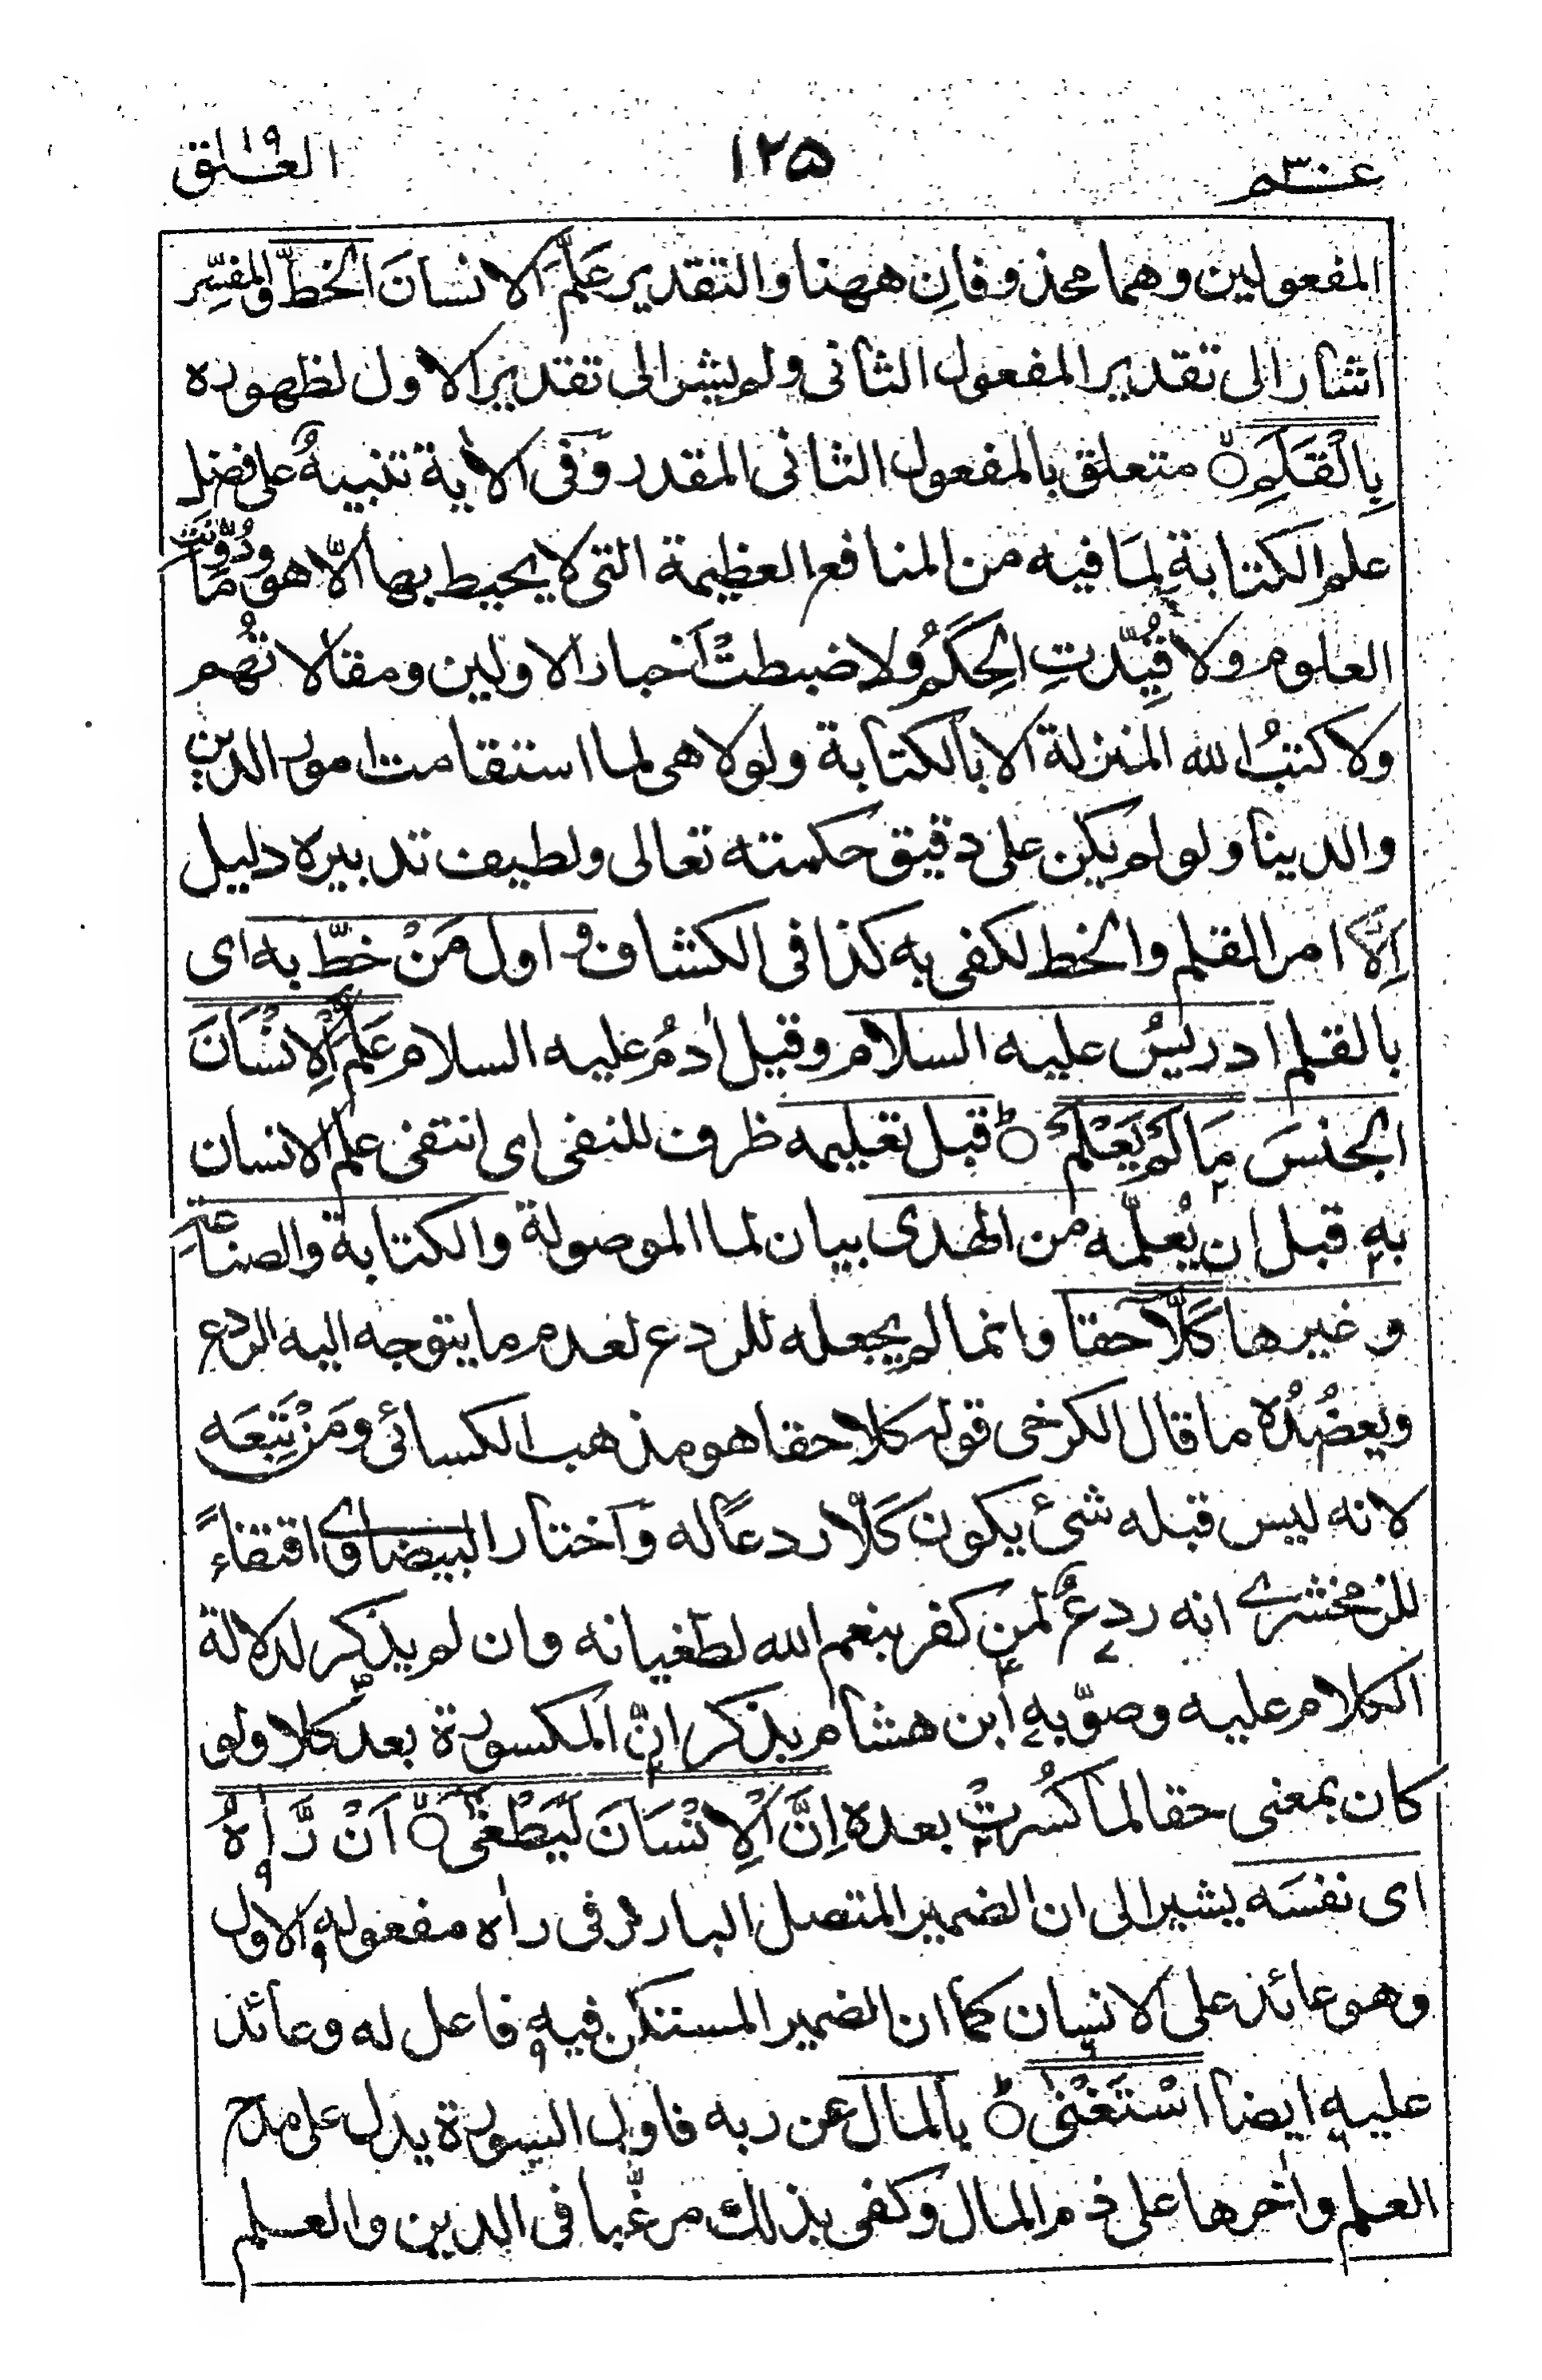 عم ٣٠ ١٢٥ العلق ١٩
المفعولين وهما محذوفان ههنا والتقدير عَلَّمَ الانسانَ الخطَّ والمفسِّر
اشار الى تقدير المفعول الثانى ولم يشر الى تقدير الاول لظهوره
بِالْقَلَمِ ۙ متعلق بالمفعول الثانى المقدر وفى الاٰية تنبيهٌ على فضل
علم الكتابة لِمَا فيه من المنافع العظيمة التى لا يحيط بها الّا هو وما دُوِّنَت
العلوم ولا قُيِّدَتِ الحِكَمُ ولا ضبطتْ اَخبار الاولين ومقالاتُهم
ولا كتبُ الله المنزلة الا بالكتابة ولولا هى لما استقامت امور الدين
والدينا ولو لم يكن على دقيق حكمته تعالى ولطيف تدبيره دليل
اِلَّا امر القلم والخط لكفى به كذا فى الكشاف و اول مَنْ خطّ به اى
بالقلم ادريسُ عليه السلام وقيل اٰدمُ عليه السلام عَلَّمَ الْاِنْسَانَ
الجنسَ مَا لَمْ يَعْلَمْ ۗ قبل تعليمه ظرف للنفى اى انتفى علم الانسان
به قبل ان يُعلّمه من الهدى بيان لما الموصولة والكتابة والصناعة
وغيرها كَلَّا حقا وانما لم يجعله للردع لعدم ما يتوجه اليه الردع
ويعضُدُه ما قال الكرخى قوله كلا حقا هو مذهب الكسائى ومَنْ تَبِعَه
لانه ليس قبله شئ يكون كَلَّا ردعًا له وَاختار البيضاوى اقتفاءً
للزمخشرى انه ردعٌ لمن كفر بنعم الله لطغيانه وان لم يذكر لدلالة
الكلام عليه وصوّبه ابن هشام بذكر انّ المكسورة بعد كلا ولو
كان بمعنى حقا لما كُسُرتْ بعده اِنَّ الْاِنْسَانَ لَيَطْغٰٓى ۙ اَنْ رَّاٰهُ
اى نفسَه يشير الى ان الضمير المتصل البارز فى راٰه مفعوله الاول
وهو عائد على الانسان كما ان الضمير المستكن فيه فاعل له وعائد
عليه ايضا اسْتَغْنٰى ۗ بالمال عن ربه فاول السورة يدل على مدح
العلم واٰخرها على ذم المال وكفى بذلك مرغّبا فى الدين والعلم